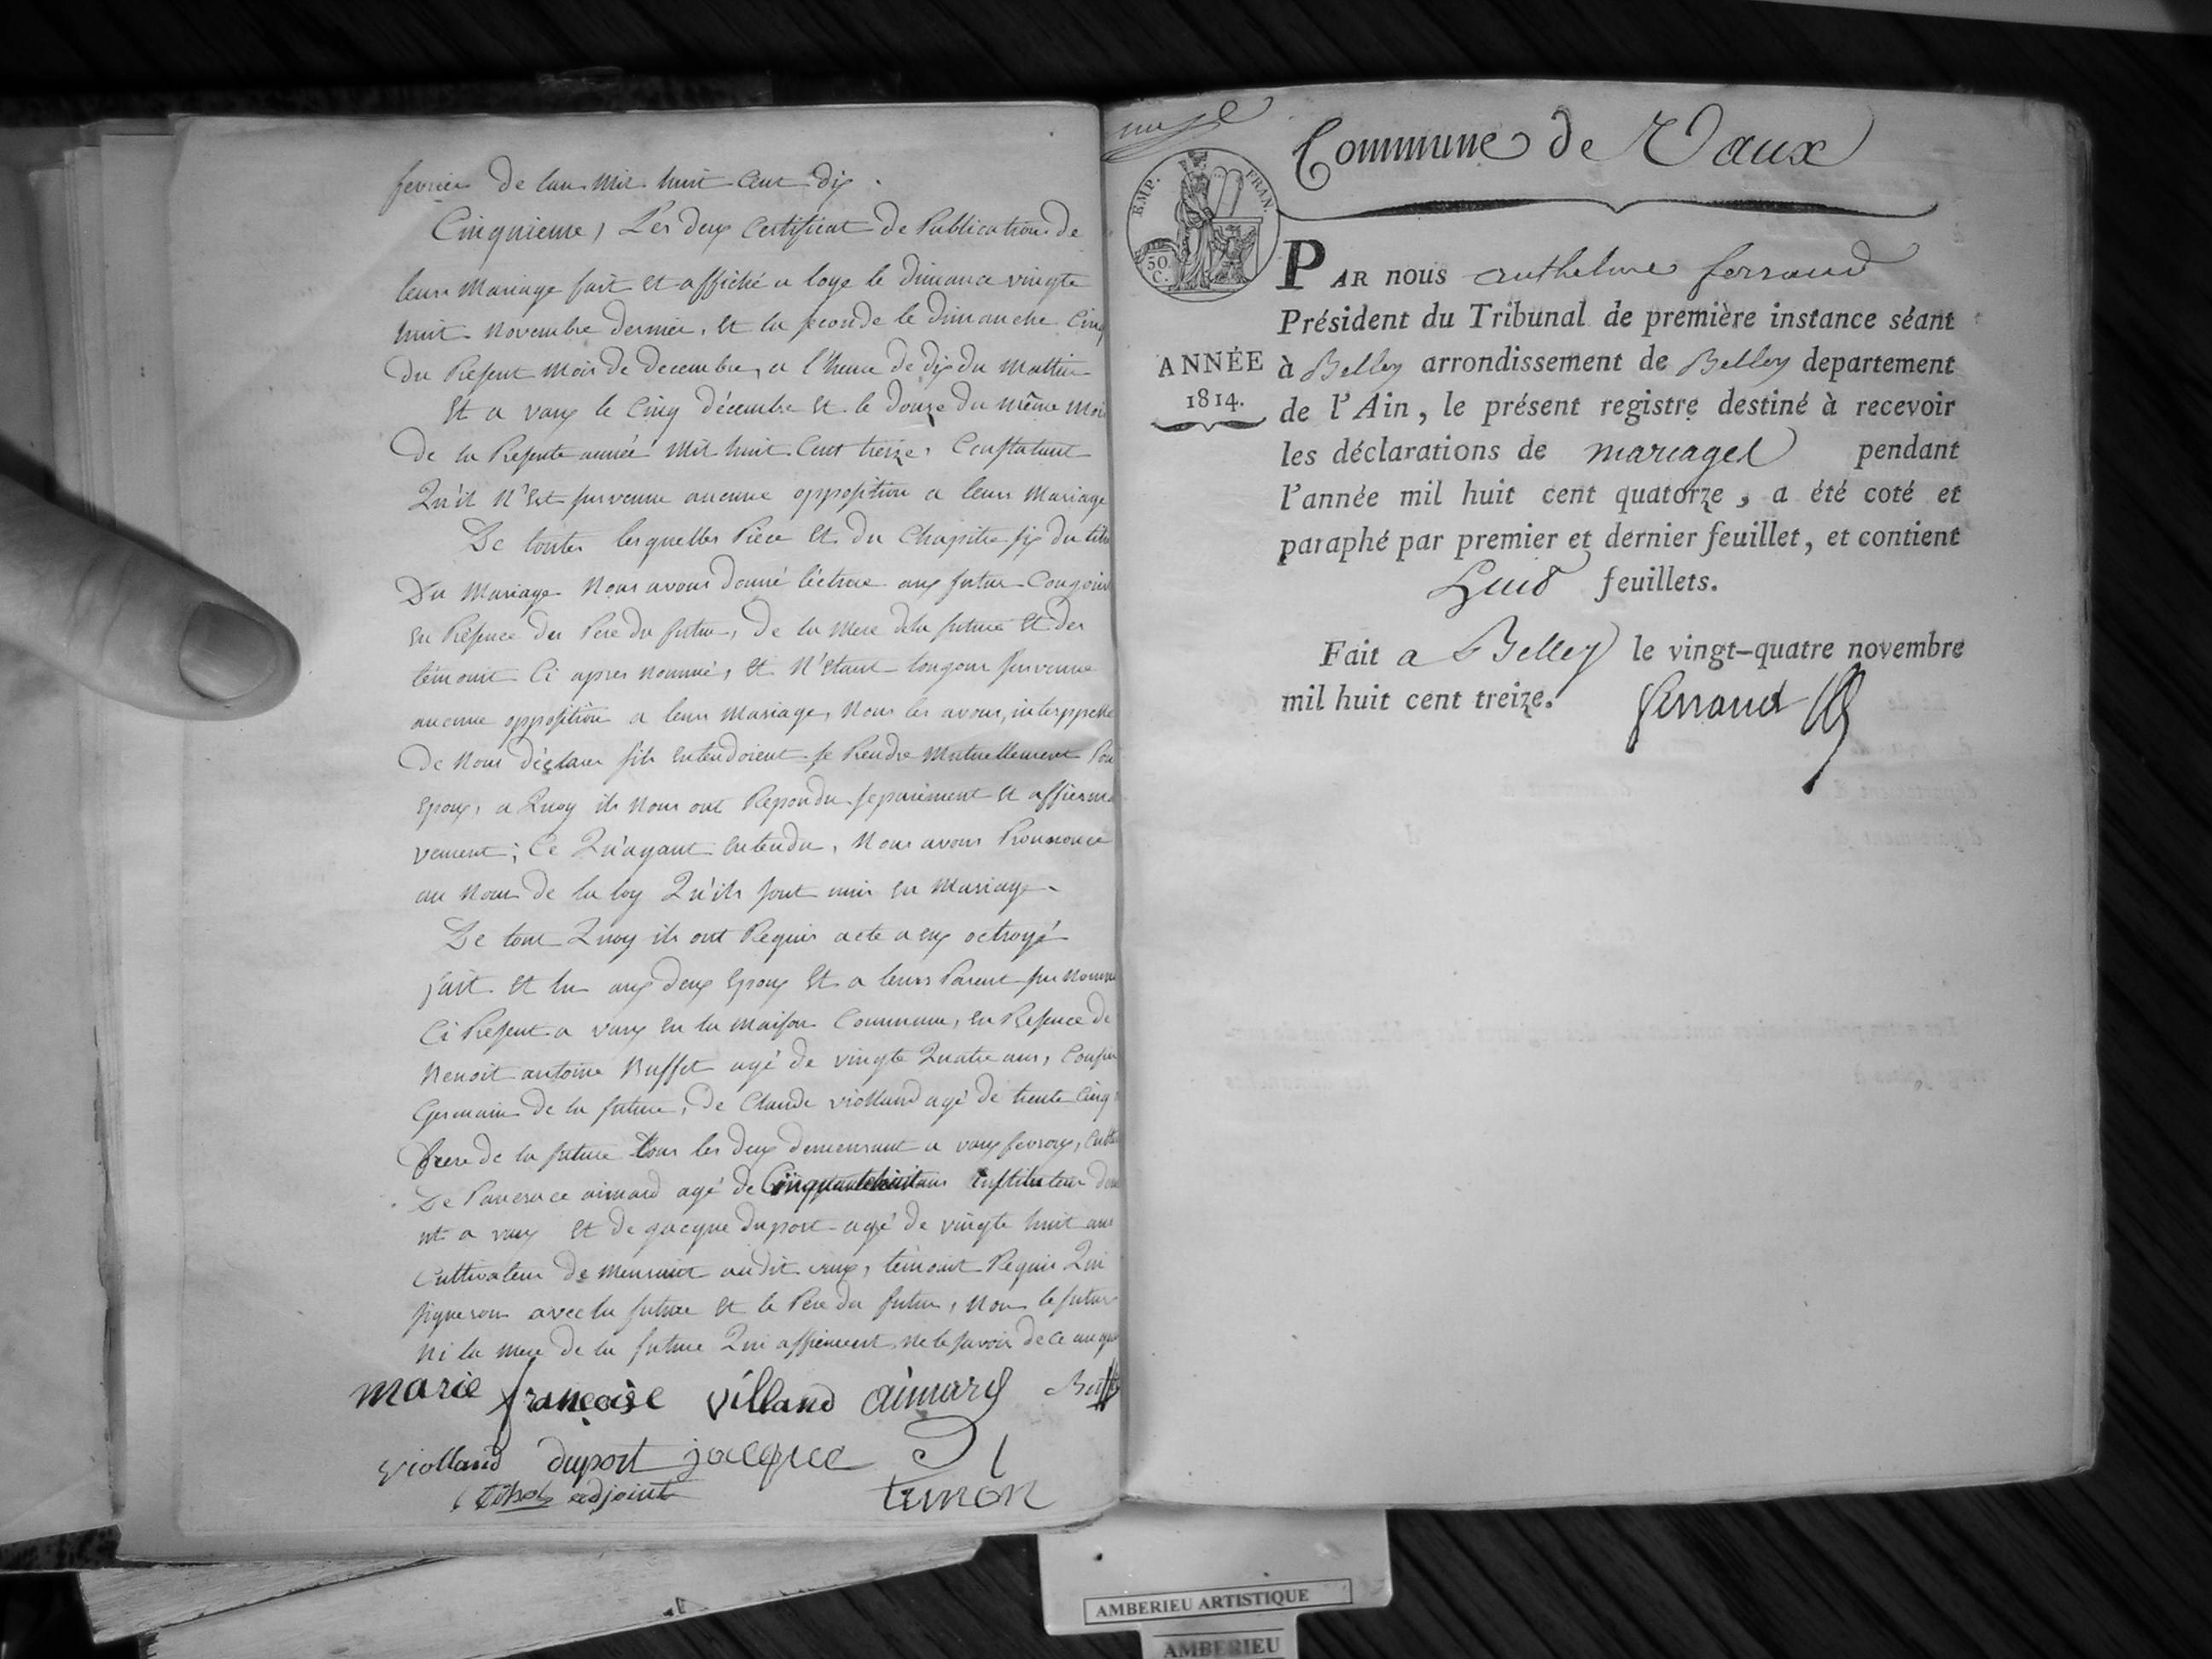 fevrier de lan mil huit cent dix.
Cinquieme, Les deux certificat de Publication de
leur Mariage fait et affiché a loye le dimance vingte
huit novembre dernier, et la seconde le dimanche Cinq
du Present mois de decembre, a l'heure de dix du mattin
Et a vaux le Cinq décembre et le douze du même moi
de la Presente année mil huit Cent treize, Constatant
Qu'il N'Est survenue aucune opposition a leur mariage
De toutes lesquelles Piece et du Chapitre six du titre
Du Mariage Nous avons donné léctrue aux futur Conjoint
en Présence des Pere du futur, de la Mere dela future et des
témoint Ci apres nommé, et N'étant toujour survenue
aucune opposition a leur mariage, Nous les avons, interppellé
De Nous déclarer sils entendoient se Prendre mutuellement Pou
Epoux, a Quoy ils Nous ont Répondu separément et affirma
vement; Ce Qu'ayant entendu, Nous avons Prononcé
au Nom de la loy Qu'ils sont unis en Mariage.
De tout Quoy ils ont Requis acte a eux octroyé
fait et lu aux deux Epoux et a leurs Parent su nommé
Ci Présent a vaux en la maison Commune, en Présence de
Benoit antoine Buffet agé de vingte Quatre ans, Cousin
Germain de la future, de Claude violland agé de trente Cinq
frere de la future tous les deux demeurant a vaux fevroux,
De Pancrace aimard agé de Cinquantehuitans instituteur
nt a vaux et de jacque duport agé de vingte huit ans
Cultivateur de meurant audit vaux, témoint Requis Qui
signeron avec la future et le Pere du futur, Non le futur
Ni la mere de la future Qui affirment ne le savoir de ce
marie françoise villand aimard Buff
violland duport jacque
adjoint timon
Commune de Vaux
EMP. FRAN.
50 C.
PAR nous anthelme ferrand
Président du Tribunal de première instance séant
ANNÉE à Belley arrondissement de Belley departement
1814. de l'Ain, le présent registre destiné à recevoir
les déclarations de mariages pendant
l'année mil huit cent quatorze, a été coté et
paraphé par premier et dernier feuillet, et contient
huit feuillets.
Fait a Belley le vingt-quatre novembre
mil huit cent treize. ferrand
AMBERIEU ARTISTIQUE
AMBERIEU